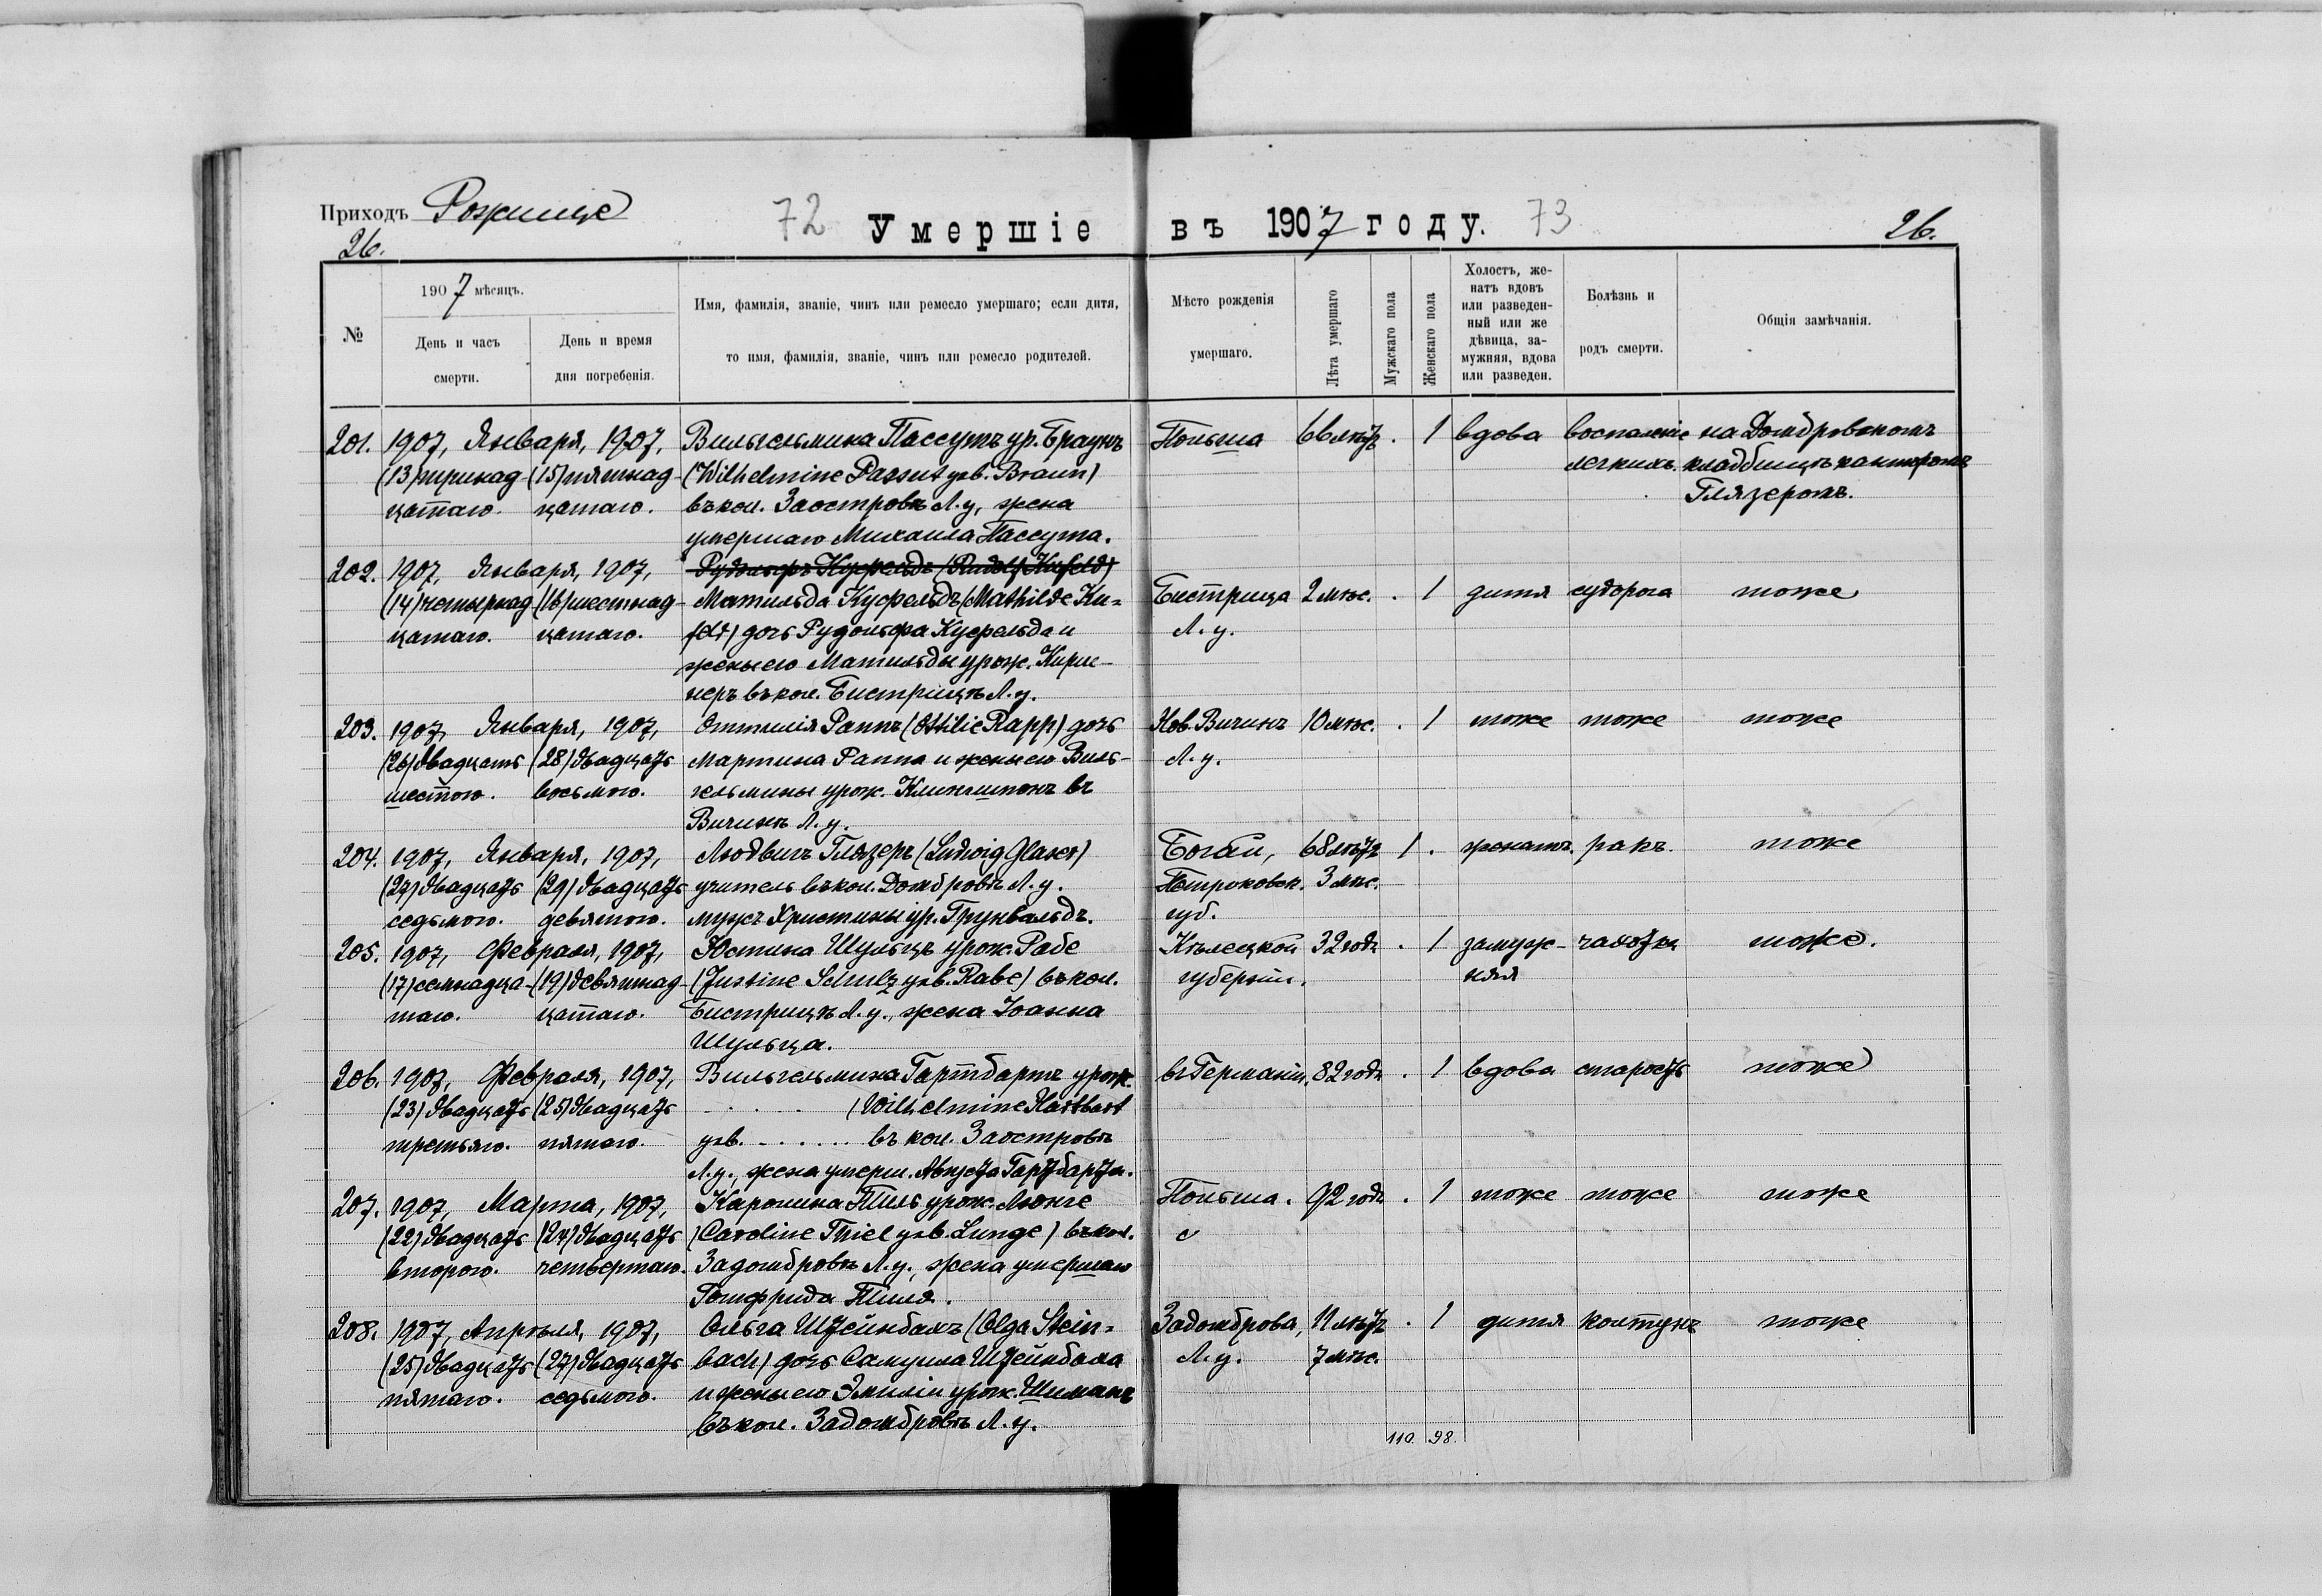 Приходъ Рожище
72 Умершіе въ 1907 году. 73
26. 26.
№
1907 мѣсяцъ.
День и часъ смерти.
День и время дня погребенія.
Имя, фамилія, званіе, чинъ или ремесло умершаго; если дитя,
то имя, фамилія, званіе, чинъ или ремесло родителей.
Мѣсто рожденія
умершаго.
Лѣта умершаго
Мужскаго пола
Женскаго пола
Холостъ, же-
натъ вдовъ
или разведен-
ный или же
дѣвица, за-
мужняя, вдова
или разведен.
Болѣзнь и
родъ смерти.
Общія замѣчанія.
201. 1907, Января, 1907, Вильгельмина Пассутъ ур. Браунъ Польша 66 лѣтъ . 1 вдова воспаленіе на Домбровскомъ
(13) тринад- (15) пятнад- (Wilhelmine Passut geb. Braun) легкихъ. кладбищѣ канторомъ
цатаго. цатаго. въ кол. Заостровѣ Л. у., жена Глязеромъ.
умершаго Михаила Пассута.
202. 1907, Января, 1907, Рудольфъ Куфельдъ (Rudolf Kufeld)
(14) четырнад- (16) шестнад- Матильда Куфельдъ (Mathilde Ku= Бистрица 2 мѣс. . 1 дитя судорога тоже
цатаго. цатаго. feld) дочь Рудольфа Куфельда и Л. у.
жены его Матильды урож. Кирш-
неръ въ кол. Бистрицѣ Л. у.
203. 1907, Января, 1907, Оттилія Раппъ (Ottilie Rapp) дочь Нов. Вичинъ 10 мѣс. . 1 тоже тоже тоже
(26) двадцать (28) двадцать Мартина Раппа и жены его Виль- Л. у.
шестого. восьмого. гельмины урож. въ
Вичинѣ Л. у.
204. 1907, Января, 1907, Людвигъ Глязеръ (Ludwig Glaser) 68 лѣтъ 1 . женатъ. ракъ. тоже
(27) двадцать (29) двадцать учитель въ кол. Домбровѣ Л. у. Петроковск. 3 мѣс.
седьмого. девятого. мужъ Христины ур. Грунвальдъ. губ.
205. 1907, Февраля, 1907, Юстина Шульцъ урож. Рабе Кѣлецкой 32 годъ . 1 замуж- чахотка тоже.
(17) семнадца- (19) девятнад- (Justine Schulz geb. Rabe) въ кол. губерніи. няя
таго. цатаго. Бистрицѣ Л. у., жена Іоанна
Шульца.
206. 1907, Февраля, 1907, Вильгельмина Гартбартъ урож. въ Германіи, 82 годъ . 1 вдова старость тоже
(23) двадцать (25) двадцать . . . . . (Wilhelmine Hartbart
третьяго. пятаго. geb. . . . . . . въ кол. Заостровѣ
Л. у., жена умерш. Августа Гартбарта.
207. 1907, Марта, 1907, Каролина Тиль урож. Люнге Польша. 92 годъ . 1 тоже тоже тоже
(22) двадцать (24) двадцать (Caroline Thiel geb. Lunge) въ кол.
второго. четвертаго. Задомбровѣ Л. у., жена умершаго
Готфрида Тиля.
208. 1907, Апрѣля, 1907, Ольга Штейнбахъ (Olga Stein= Задомброва, 11 лѣтъ . 1 дитя колтунъ тоже
(25) двадцать (27) двадцать bach) дочь Самуила Штейнбаха Л. у. 7 мѣс.
пятаго. седьмого. и жены его Эмиліи урож. Шиманъ
въ кол. Задомбровѣ Л. у.
110. 98.